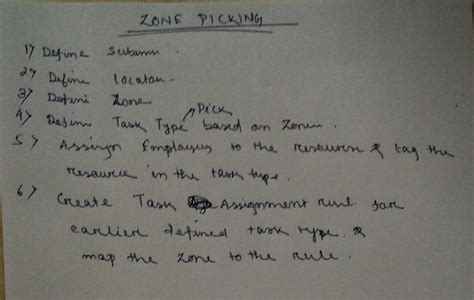 ZONE PICKING
1) Define Subinv.
2) Define Locator.
3) Define Zone
Pick
4) Define Task Type based on Zone.
5) Assign Employees to the resource & tag the
resource in the task type.
6) Create Task Assignment rule for
earlier defined task type &
map the zone to the rule.